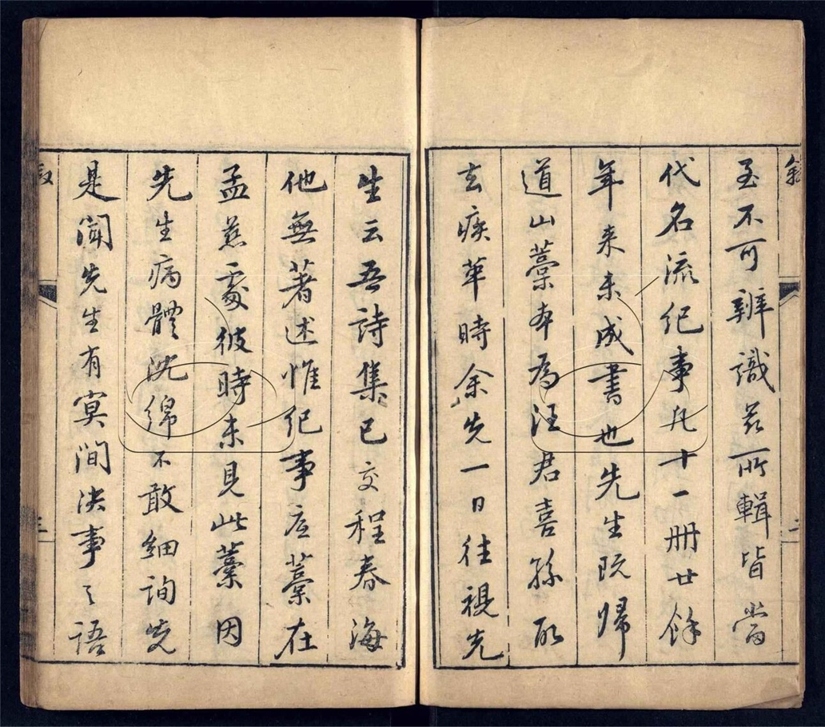 至不可辨識若所輯皆當
代名流纪事凡十一冊廿餘
年来未成書也先生既歸
道山藁本為汪君喜孫取
去疾革時余先一日往視先
生云吾詩集已交程春海
他無著述惟纪事底藁在
孟慈處彼時未見此藁因
先生病體沈綿不敢細詢先
是聞先生有冥間决事之語